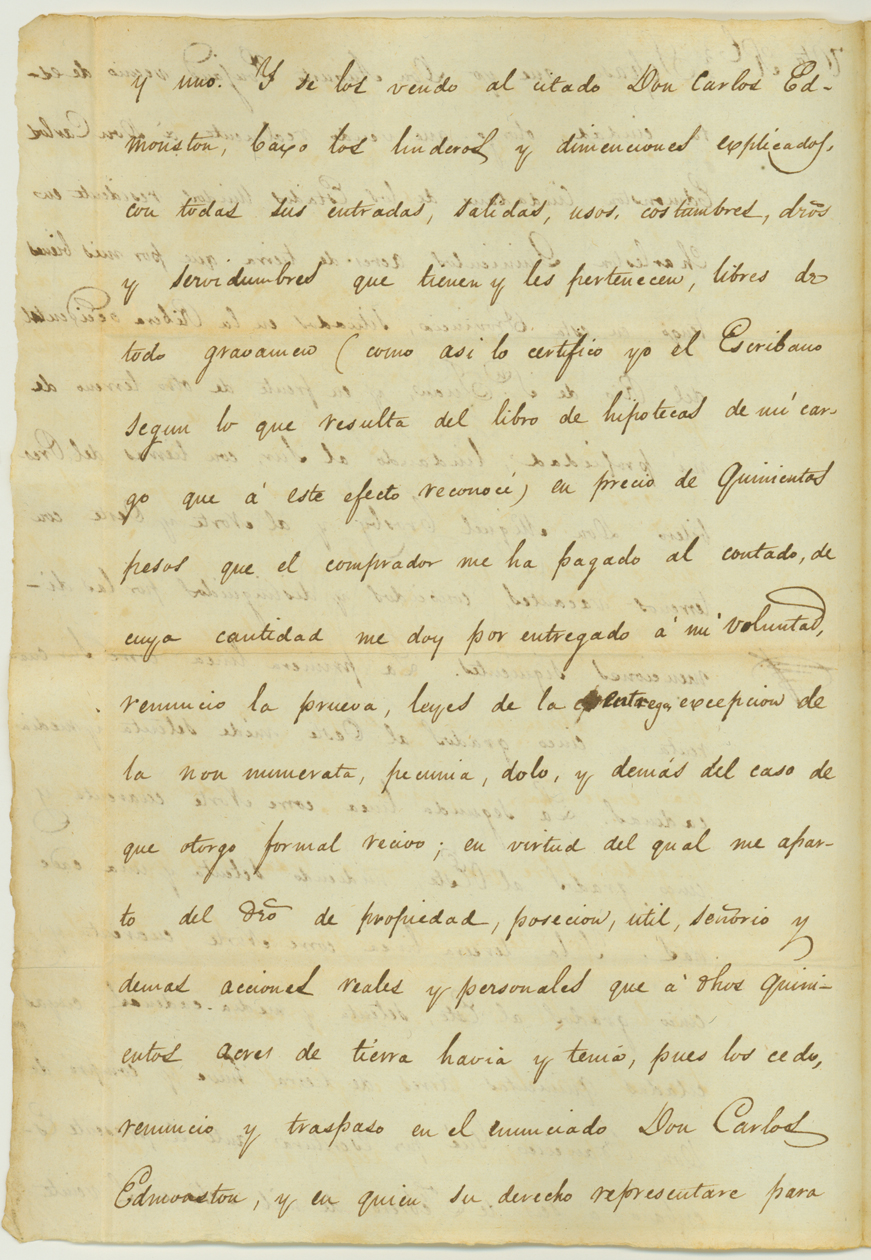 y uno. Y se los vendo al citado Don Carlos Ed-
monston, baxo los linderos y dimenciones explicados,
con todas sus entradas, salidas, usos, costumbres, dros
y servidumbres que tienen y les pertenecen, libres de
todo gravamen (como asi lo certifico yo el Escribano
segun lo que resulta del libro de hipotecas de mi car-
go que á este efecto reconocí) en precio de Quinientos
pesos que el comprador me ha pagado al contado, de
cuya cantidad me doy por entregado á mi voluntad,
renuncio la prueva, leyes de la entrega, excepcion de
la non numerata, pecunia, dolo, y demás del caso de
que otorgo formal recivo; en virtud del qual me apar-
to del dro de propiedad, posecion, util, señorio y
demas acciones reales y personales que á dhos Quini-
entos acres de tierra havia y tenia, pues los cedo,
renuncio y traspaso en el enunciado Don Carlos
Edmonston, y en quien su derecho representare para